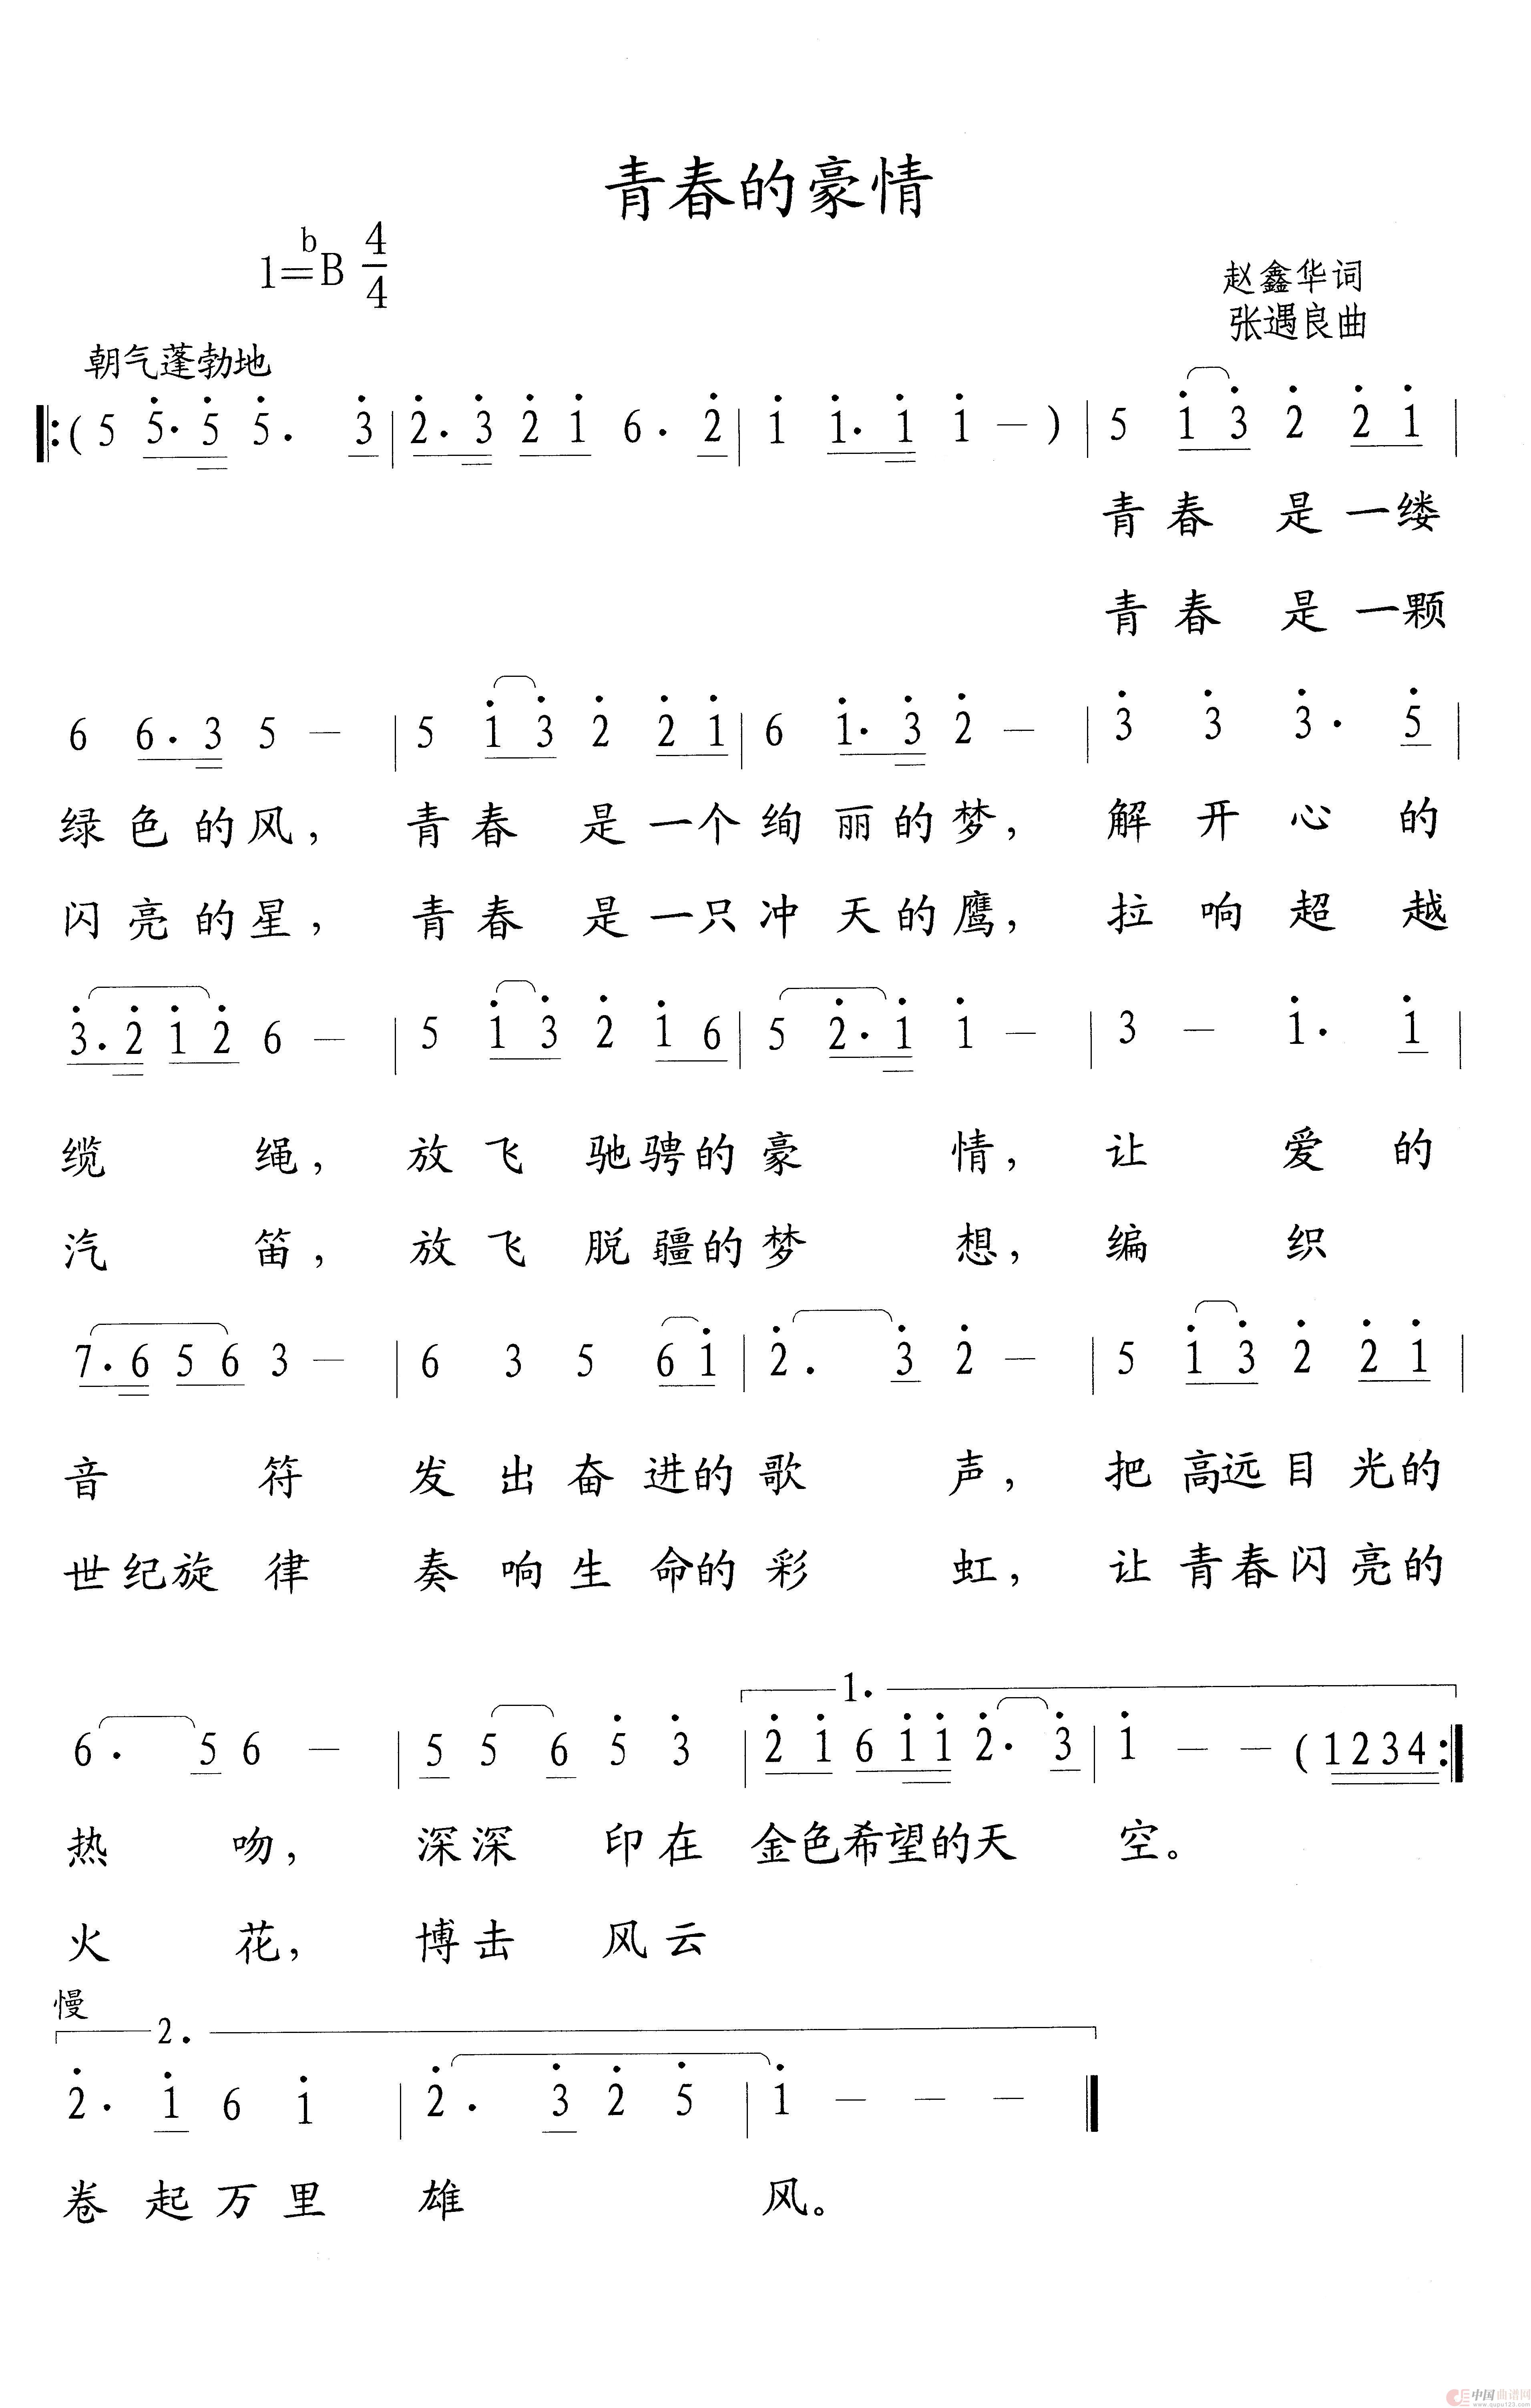 青春的豪情
1=bB 4/4
赵鑫华词
张遇良曲
朝气蓬勃地
‖:( 5 5̇. 5̇ 5̇. 3̇ | 2̇. 3̇ 2̇ 1̇ 6. 2̇ | 1̇ 1̇. 1̇ 1̇ — ) | 5 1̇ 3̇ 2̇ 2̇ 1̇ |
青春 是一缕
青春 是一颗
6 6. 3 5 — | 5 1̇ 3̇ 2̇ 2̇ 1̇ | 6 1̇. 3̇ 2̇ — | 3̇ 3̇ 3̇. 5̇ |
绿色的风, 青春 是一个绚丽的梦, 解开心的
闪亮的星, 青春 是一只冲天的鹰, 拉响超越
3̇. 2̇ 1̇ 2̇ 6 — | 5 1̇ 3̇ 2̇ 1̇ 6 | 5 2̇. 1̇ 1̇ — | 3 — 1̇. 1̇ |
缆 绳, 放飞 驰骋的豪 情, 让 爱的
汽 笛, 放飞 脱疆的梦 想, 编 织
7. 6 5 6 3 — | 6 3 5 6 1̇ | 2̇. 3̇ 2̇ — | 5 1̇ 3̇ 2̇ 2̇ 1̇ |
音 符 发出奋进的歌 声, 把高远目光的
世纪旋律 奏响生命的彩 虹, 让青春闪亮的
1.
6. 5 6 — | 5 5 6 5̇ 3̇ | 2̇ 1̇ 6 1̇ 1̇ 2̇. 3̇ | 1̇ — — ( 1 2 3 4 :‖
热 吻, 深深 印在 金色希望的天 空。
火 花, 博击 风云
慢
2.
2̇. 1̇ 6 1̇ | 2̇. 3̇ 2̇ 5̇ | 1̇ — — — ‖
卷起万里 雄 风。
中国曲谱网
www.qupu123.com